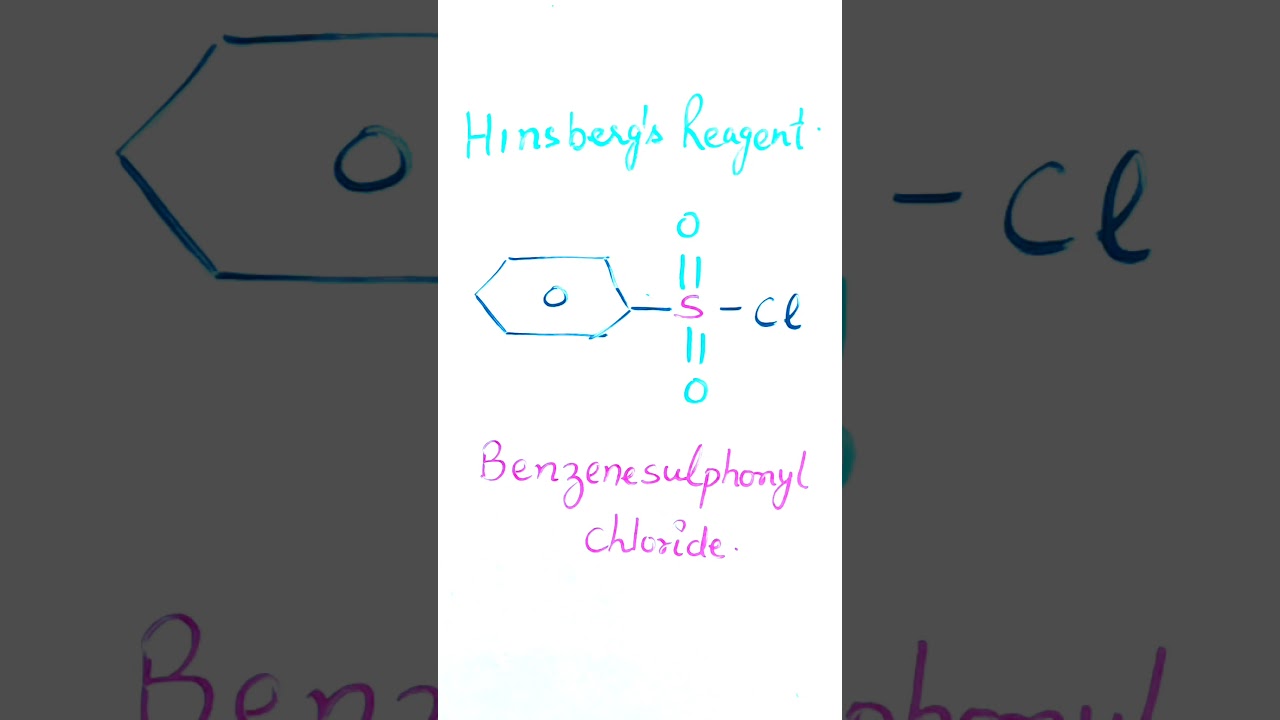 Hinsberg's Reagent.
O
S - Cl
O
Benzenesulphonyl
chloride.